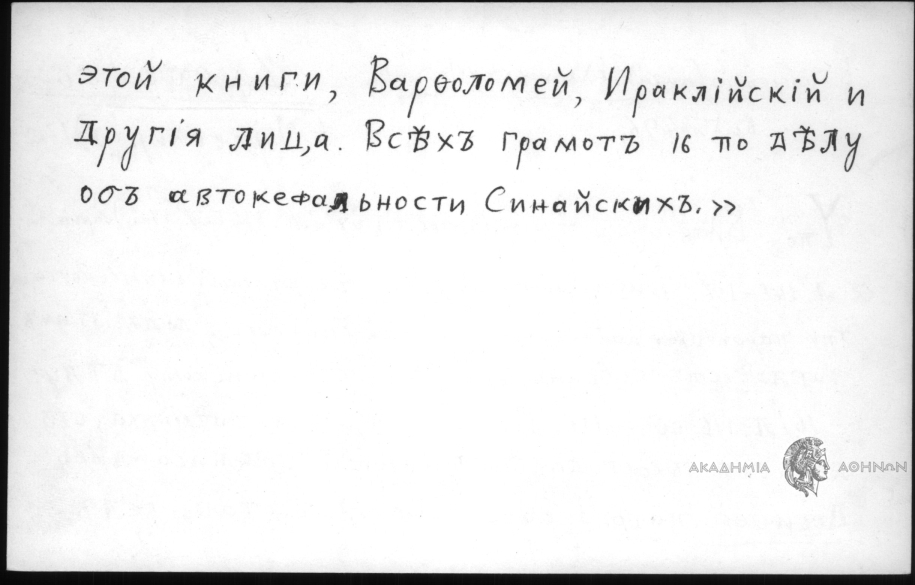 этой книги, Варѳоломей, Ираклійскій и
Другія лица. Всѣхъ грамотъ 16 по дѣлу
объ автокефальности Синайскихъ.»
ΑΚΑΔΗΜΙΑ ΑΘΗΝΩΝ